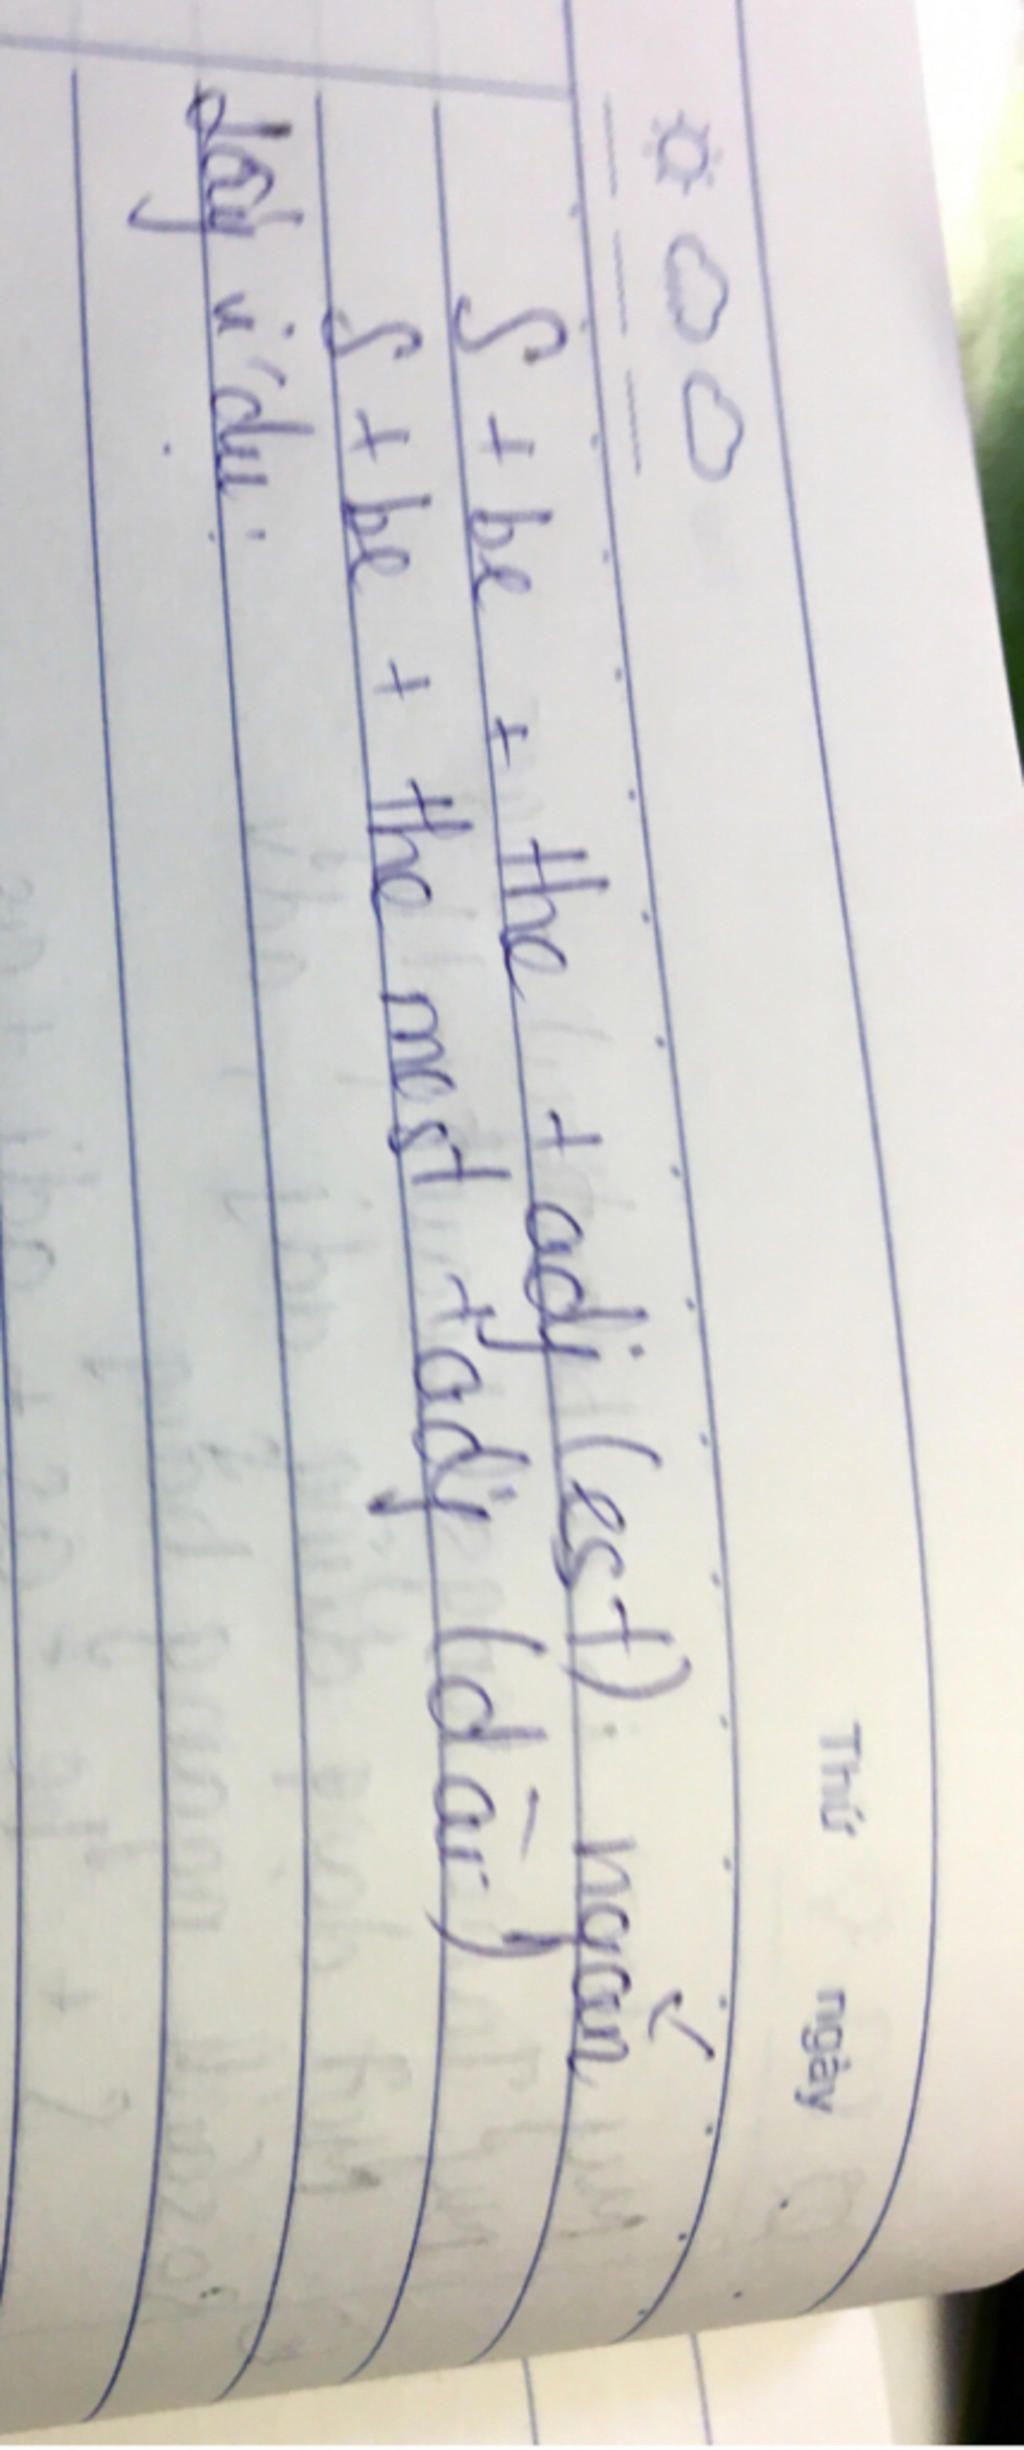 Thứ ngày
S + be + the + adj (est) : ngắn
S + be + the most + adj (dài)
lấy ví dụ: